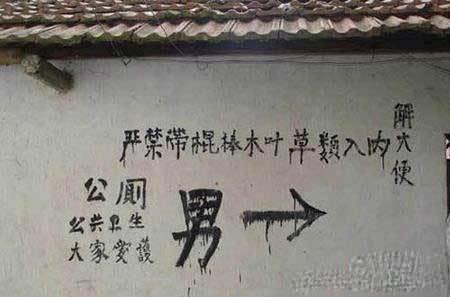 严禁带棍棒木叶草類入内
解大便
公厕
公共卫生
大家爱護
男